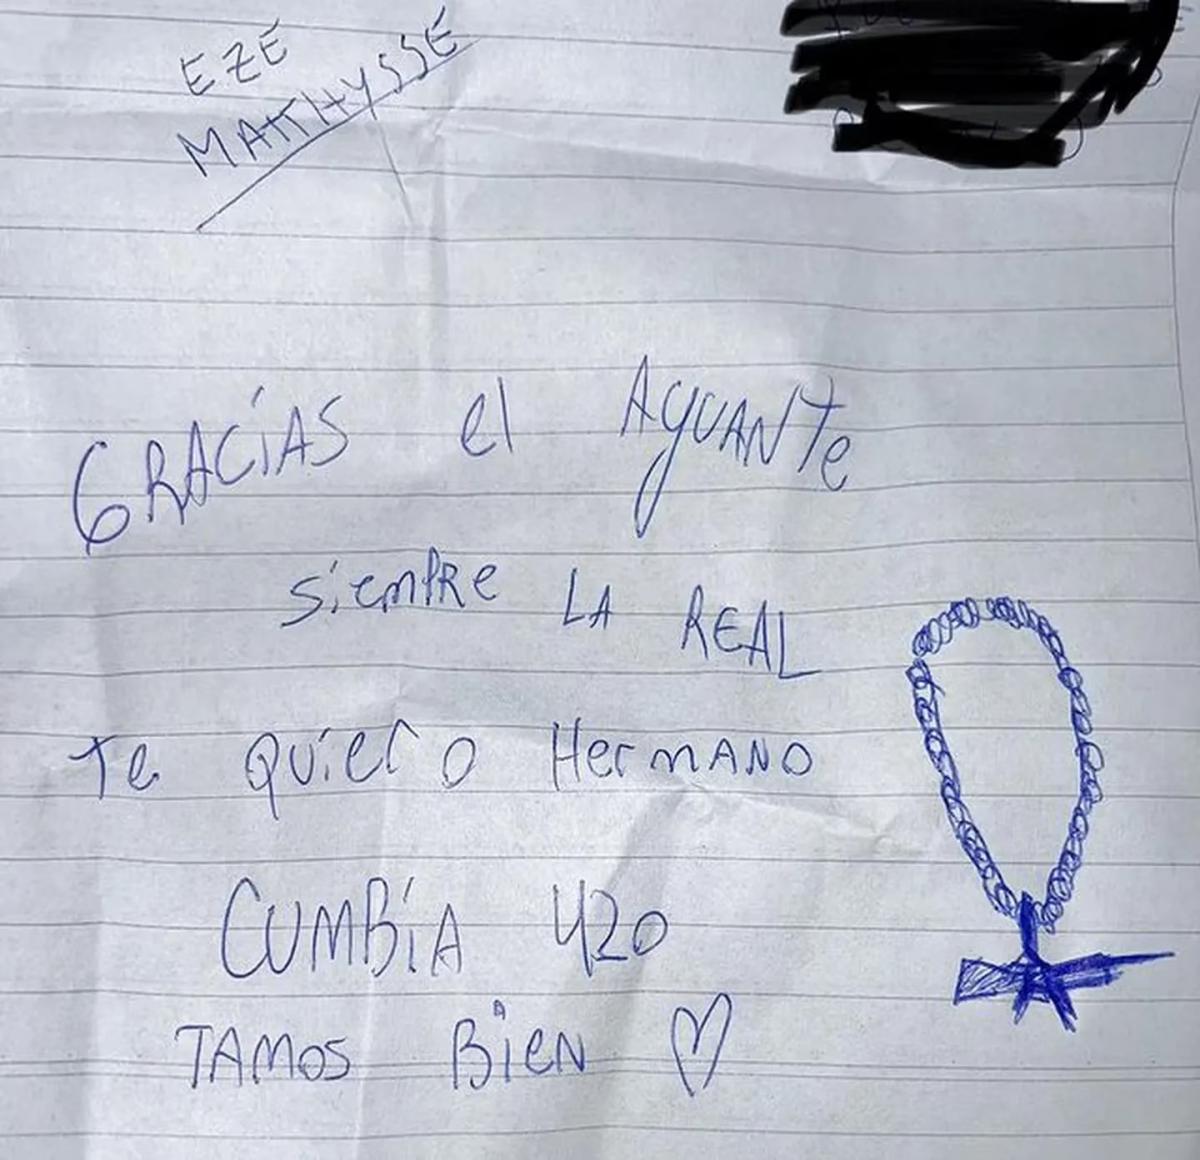 EZE
MATTHYSSE
GRACIAS el AGUANTE
siempre LA REAL
Te quiero HermANO
CUMBIA 420
TAMOS BiEN